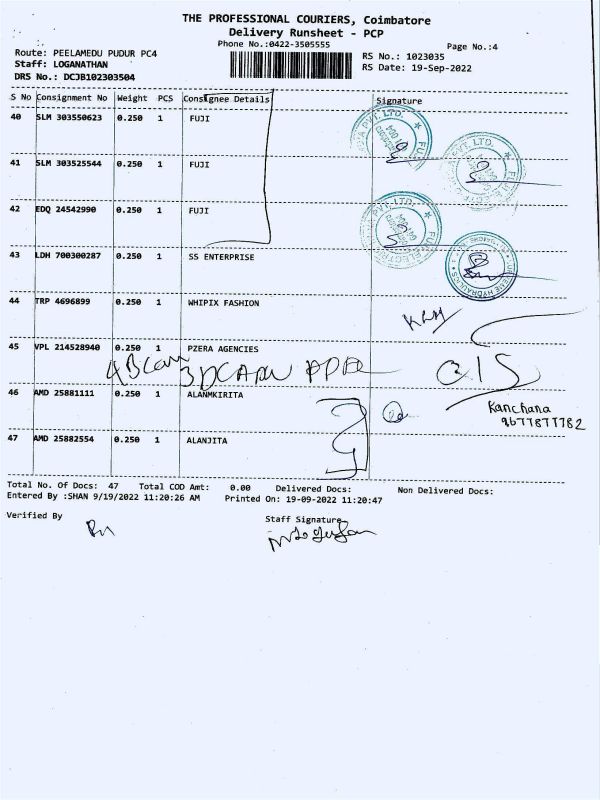 THE PROFESSIONAL COURIERS, Coimbatore
Delivery Runsheet - PCP
Phone No.:0422-3505555
Page No.:4
Route: PEELAMEDU PUDUR PC4
Staff: LOGANATHAN
DRS No.: DCJB102303504
RS No.: 1023035
RS Date: 19-Sep-2022
S No Consignment No Weight PCS Consignee Details Signature
40 SLM 303550623 0.250 1 FUJI
41 SLM 303525544 0.250 1 FUJI
42 EDQ 24542990 0.250 1 FUJI
43 LDH 700300287 0.250 1 SS ENTERPRISE
44 TRP 4696899 0.250 1 WHIPIX FASHION
45 VPL 214528940 0.250 1 PZERA AGENCIES
46 AMD 25881111 0.250 1 ALANMKIRITA
Kanchana
9677877782
47 AMD 25882554 0.250 1 ALANJITA
Total No. Of Docs: 47 Total COD Amt: 0.00 Delivered Docs: Non Delivered Docs:
Entered By :SHAN 9/19/2022 11:20:26 AM Printed On: 19-09-2022 11:20:47
Verified By
Staff Signature